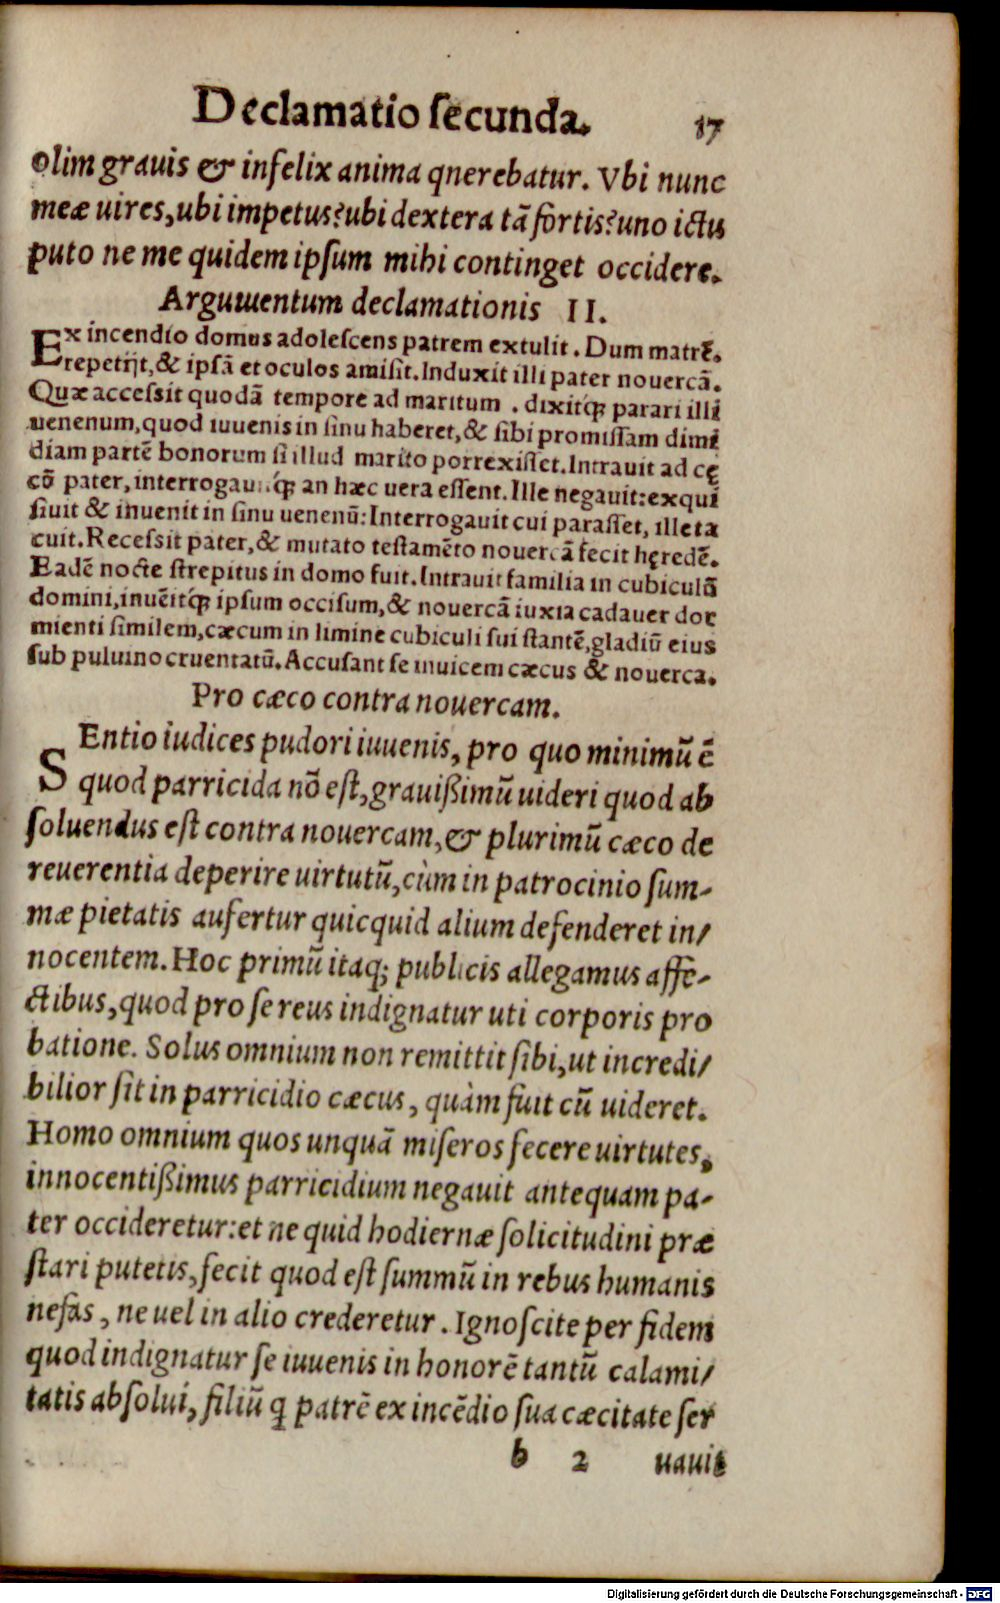 Declamatio ſecunda. 17
olim grauis & infelix anima qnerebatur. Vbi nunc
meæ uires, ubi impetus? ubi dextera tã fortis? uno ictu
puto ne me quidem ipſum mihi continget occidere.
Arguwentum declamationis II.
Ex incendio domus adoleſcens patrem extulit. Dum matrẽ.
repetijt, & ipſã et oculos amiſit. Induxit illi pater nouercã.
Quæ acceſsit quodã tempore ad maritum. dixitq́ꝫ parari illi
uenenum, quod iuuenis in ſinu haberet, & ſibi promiſſam dimi
diam partẽ bonorum ſi illud marito porrexiſſet. Intrauit ad cę
cõ pater, interrogauitq́ꝫ an hæc uera eſſent. Ille negauit: exqui
ſiuit & inuenit in ſinu uenenũ: Interrogauit cui paraſſet, ille ta
cuit. Receſsit pater, & mutato teſtamẽto nouercã fecit hęredẽ.
Eadẽ nocte ſtrepitus in domo fuit. Intrauit familia in cubiculũ
domini, inuẽitq́ꝫ ipſum occiſum, & nouercã iuxta cadauer dor
mienti ſimilem, cæcum in limine cubiculi ſui ſtantẽ, gladiũ eius
ſub puluino cruentatũ. Accuſant ſe inuicem cæcus & nouerca.
Pro cæco contra nouercam.
SEntio iudices pudori iuuenis, pro quo minimũ ẽ
quod parricida nõ eſt, grauißimũ uideri quod ab
ſoluendus eſt contra nouercam, & plurimũ cæco de
reuerentia deperire uirtutũ, cùm in patrocinio ſum-
mæ pietatis aufertur quicquid alium defenderet in/
nocentem. Hoc primũ itaq; publicis allegamus affe-
ctibus, quod pro ſe reus indignatur uti corporis pro
batione. Solus omnium non remittit ſibi, ut incredi/
bilior ſit in parricidio cæcus, quàm fuit cũ uideret.
Homo omnium quos unquã miſeros fecere uirtutes,
innocentißimus parricidium negauit antequam pa-
ter occideretur: et ne quid hodiernæ ſolicitudini præ
ſtari putetis, fecit quod eſt ſummũ in rebus humanis
nefas, ne uel in alio crederetur. Ignoſcite per fidem
quod indignatur ſe iuuenis in honorẽ tantũ calami/
tatis abſolui, filiũ q patrẽ ex incẽdio ſua cæcitate ſer
b 2 uauit
Digitalisierung gefördert durch die Deutsche Forschungsgemeinschaft - DFG